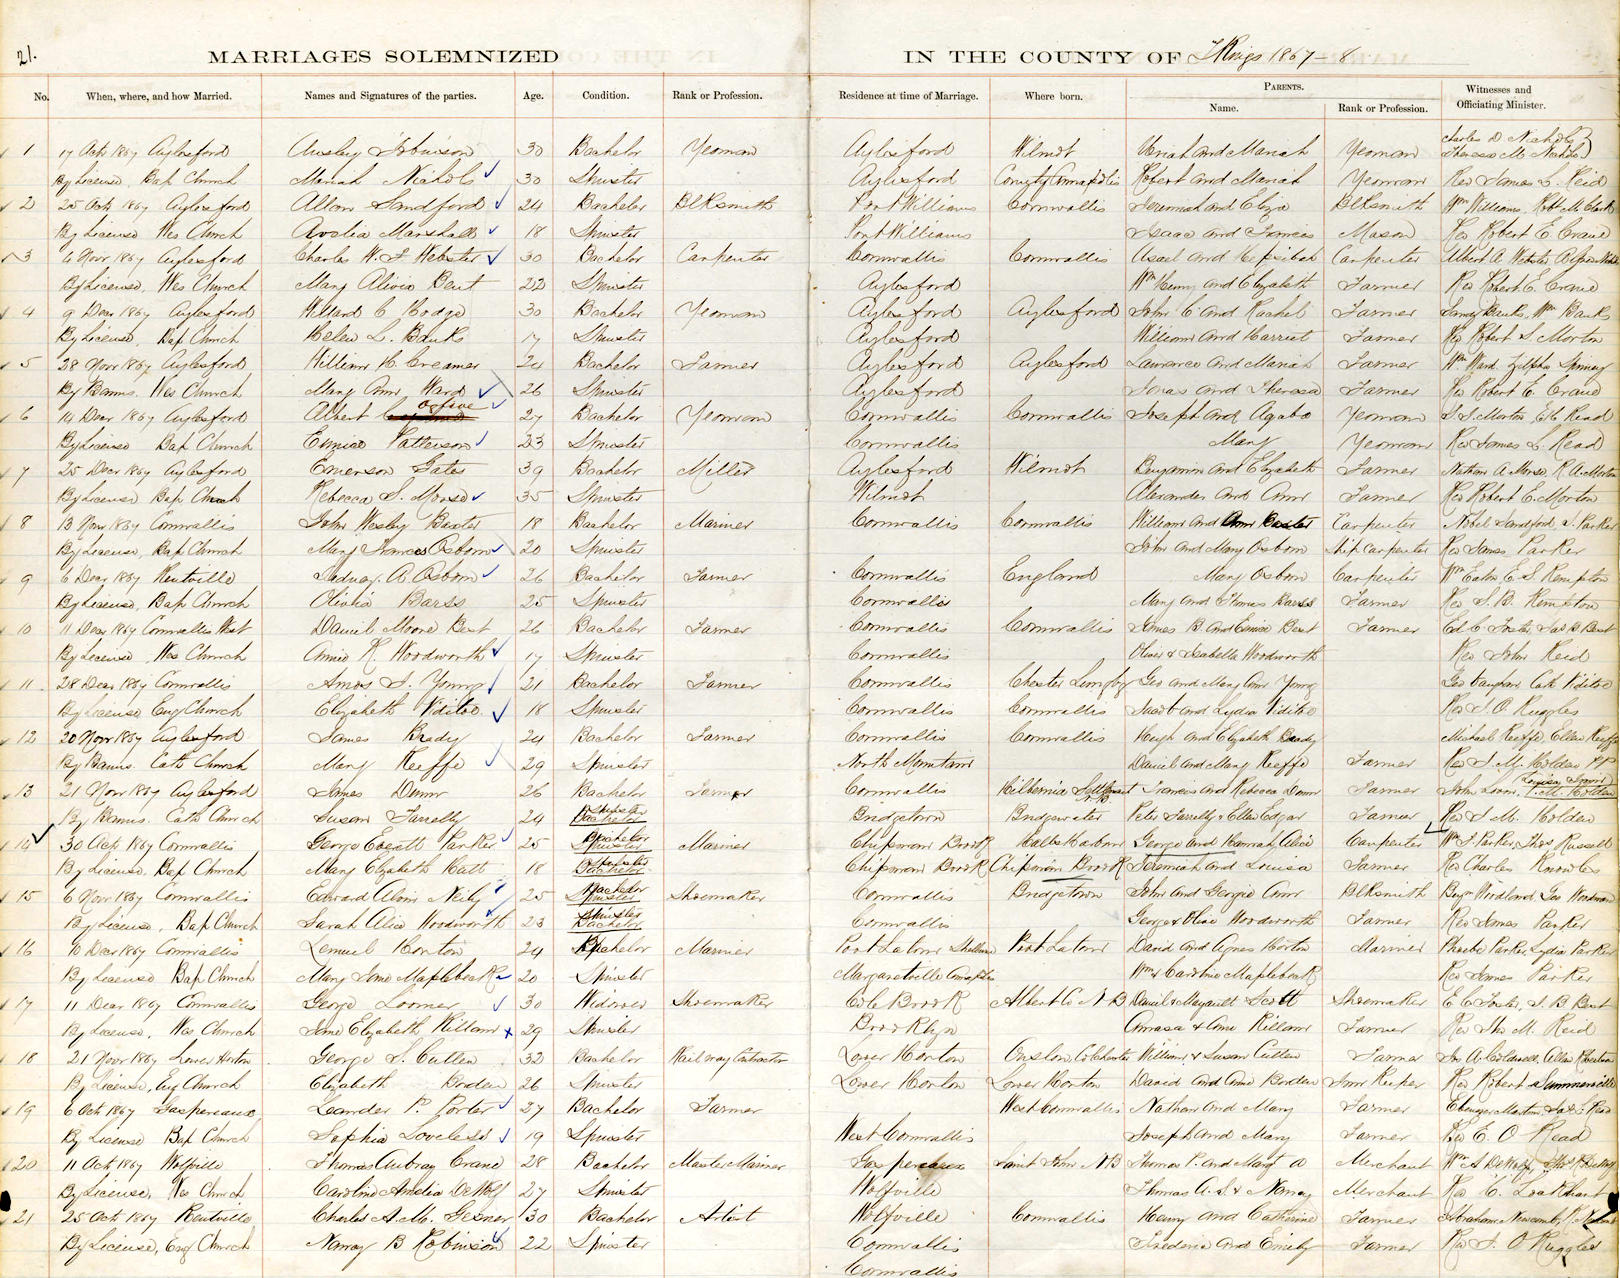 21.
MARRIAGES SOLEMNIZED IN THE COUNTY OF Kings 1867-8
No. When, where, and how Married. Names and Signatures of the parties. Age. Condition. Rank or Profession. Residence at time of Marriage. Where born. PARENTS. Name. Rank or Profession. Witnesses and Officiating Minister.
Charles D Nichols
1 17 Octr 1867 Aylesford Ainsley Robinson 30 Bachelor Yeoman Aylesford Wilmot Uriah and Mariah Yeoman Theresa M Nichols
By License, Bap Church Mariah Nichols 30 Spinster Aylesford County Annapolis Robert and Mariah Yeoman Rev James L. Reid
2 25 Octr 1867 Aylesford Allan Sandford 24 Bachelor Blksmith Port Williams Cornwallis Jeremiah and Eliza Blksmith Wm Williams, Robt M. Clark
By License Wes Church Avelia Marshall 18 Spinster Port Williams Isaac and Frances Mason Rev Robert E Crane
3 6 Novr 1867 Aylesford Charles W. F Webster 30 Bachelor Carpenter Cornwallis Cornwallis Asael and Hepsibah Carpenter Albert A. Webster
By License, Wes Church Mary Alivia Bent 22 Spinster Aylesford Wm Henry and Elizabeth Farmer Rev Robert E. Crane
4 9 Decr 1867 Aylesford Willard C Hodge 30 Bachelor Yeoman Aylesford Aylesford John C and Rachel Farmer Banks, Wm Banks
By License, Bap Church Helen L. Banks 17 Spinster Aylesford William and Harriet Farmer Rev Robert S Morton
5 28 Novr 1867 Aylesford William H. Creamer 24 Bachelor Farmer Aylesford Aylesford Lawrence and Mariah Farmer Wm Ward, Zilpha Spinney
By Banns. Wes Church Mary Ann Ward 26 Spinster Aylesford and Theresa Farmer Rev Robert E. Crane
6 14 Decr 1867 Aylesford Albert 27 Bachelor Yeoman Cornwallis Cornwallis Joseph and Agaba Yeoman Morton, Read
By License Bap Church Eunice Patterson 23 Spinster Cornwallis Mary Yeoman Rev James L. Read
7 25 Decr 1867 Aylesford Emerson Gates 39 Bachelor Miller Aylesford Wilmot Benjamin and Elizabeth Farmer Nathan A. Morse, R. A. Morton
By License Bap Church Rebecca S. Morse 35 Spinster Wilmot Alexander and Ann Farmer Rev Robert E. Morton
8 13 Novr 1867 Cornwallis John Wesley Baxter 18 Bachelor Mariner Cornwallis Cornwallis William and Ann Baxter Carpenter Nobel Sandford, J. Parker
By License, Bap Church Mary Frances Osborn 20 Spinster John and Mary Osborn Ship Carpenter Rev James Parker
9 6 Decr 1867 Kentville A. Osborn 26 Bachelor Farmer Cornwallis England Mary Osborn Carpenter Wm Eaton E S. Kempton
By License, Bap Church Olivia Barss 25 Spinster Cornwallis Mary and Thomas Barss Farmer Rev S. B. Kempton
10 11 Decr 1867 Cornwallis West Daniel Moore Bent 26 Bachelor Farmer Cornwallis Cornwallis James B. and Eunice Bent Farmer Ed C Foster, Jas B Bent
By License, Wes Church Annie K. Woodworth 17 Spinster Cornwallis Oliver & Isabella Woodworth Rev John Reid
11 28 Decr 1867 Cornwallis Amos J. Young 21 Bachelor Farmer Cornwallis Chester Geo and Mary Ann Young Geo Vaughan Cath Viditoe
By License Eng Church Elizabeth Viditoe 18 Spinster Cornwallis Cornwallis Jacob and Lydia Viditoe Rev J O. Ruggles
12 20 Novr 1867 Aylesford James Brady 24 Bachelor Farmer Cornwallis Cornwallis Hugh and Elizabeth Brady Michael Keeffe, Ellen Keeffe
By Banns. Cath Church Mary Keeffe 29 Spinster North Mountain Daniel and Mary Keeffe Farmer Rev T. M. Holden PP
13 21 Novr 1867 Aylesford James Dunn 26 Bachelor Farmer Cornwallis Hibbernia Settlement N B Francis and Rebecca Dunn Farmer John T. M. Holden
By Banns. Cath Church Susan Farrelly 24 Spinster Bachelor Bridgetown Bridgewater Peter Farrelly & Ellen Edgar Farmer Rev T. M. Holden
14 30 Octr 1867 Cornwallis George Everett Parker 25 Bachelor Spinster Mariner Chipman Brook Halls Harbour George and Hannah Alice Carpenter Wm F. Parker, Thos Russell
By License, Bap Church Mary Elizabeth Hall 18 Spinster Bachelor Chipman Brook Chipman Brook Jeremiah and Louisa Farmer Rev Charles Knowles
15 6 Novr 1867 Cornwallis Edward Alvin Neily 25 Bachelor Spinster Shoemaker Cornwallis Bridgetown John and Georgie Ann Blksmith Benj Woodland, Geo Woodman
By License, Bap Church Sarah Alice Woodworth 23 Spinster Bachelor Cornwallis George & Olive Woodworth Farmer Rev James Parker
16 10 Decr 1867 Cornwallis Lemuel Horton 24 Bachelor Mariner Port Latour Shelburne Port Latour David and Agnes Horton Mariner Phoebe Parker, Lydia Parker
By License Bap Church Mary Jane Maplebeak 20 Spinster Margaretville Annapolis Wm & Caroline Maplebeak Rev James Parker
17 11 Decr 1867 Cornwallis George Loomer 30 Widower Shoemaker Cole Brook Albert Co N B Daniel & Margaret Scott Shoemaker E C Foster, J. B Bent
By License, Wes Church Jane Elizabeth Killam 29 Spinster Brooklyn Amasa & Ann Killam Farmer Rev Jno M. Reid
18 21 Novr 1867 Lower Horton George S. Cullen 32 Bachelor Railway Contractor Lower Horton Onslow, Colchester William & Susan Cullen Farmer Jno A. Coldwell, Allen Robertson
By License, Eng Church Elizabeth Borden 26 Spinster Lower Horton Lower Horton David and Ann Borden Inn Keeper Rev Robert Summerville
19 6 Octr 1867 Gaspereaux Leander P. Porter 27 Bachelor Farmer West Cornwallis Nathan and Mary Farmer Ebenezer Martin, Read
By License Bap Church Sophia Loveless 19 Spinster West Cornwallis Joseph and Mary Farmer Rev E. O Read
20 11 Octr 1867 Wolfville Thomas Aubray Crane 28 Bachelor Master Mariner Gaspereaux Saint John N B Thomas P. and Margt A Merchant Wm A DeWolf, Thos R DeWolf
By License, Wes Church Caroline Amelia DeWolf 27 Spinster Wolfville Thomas A. S. & Nancy Merchant Rev C. Lockhart
21 25 Octr 1867 Kentville Charles A. M. Gesner 30 Bachelor Artist Wolfville Cornwallis Henry and Catherine Farmer Abraham Newcomb,
By License, Eng Church Nancy B Robinson 22 Spinster Cornwallis Frederic and Emily Farmer Rev J. O Ruggles
Cornwallis